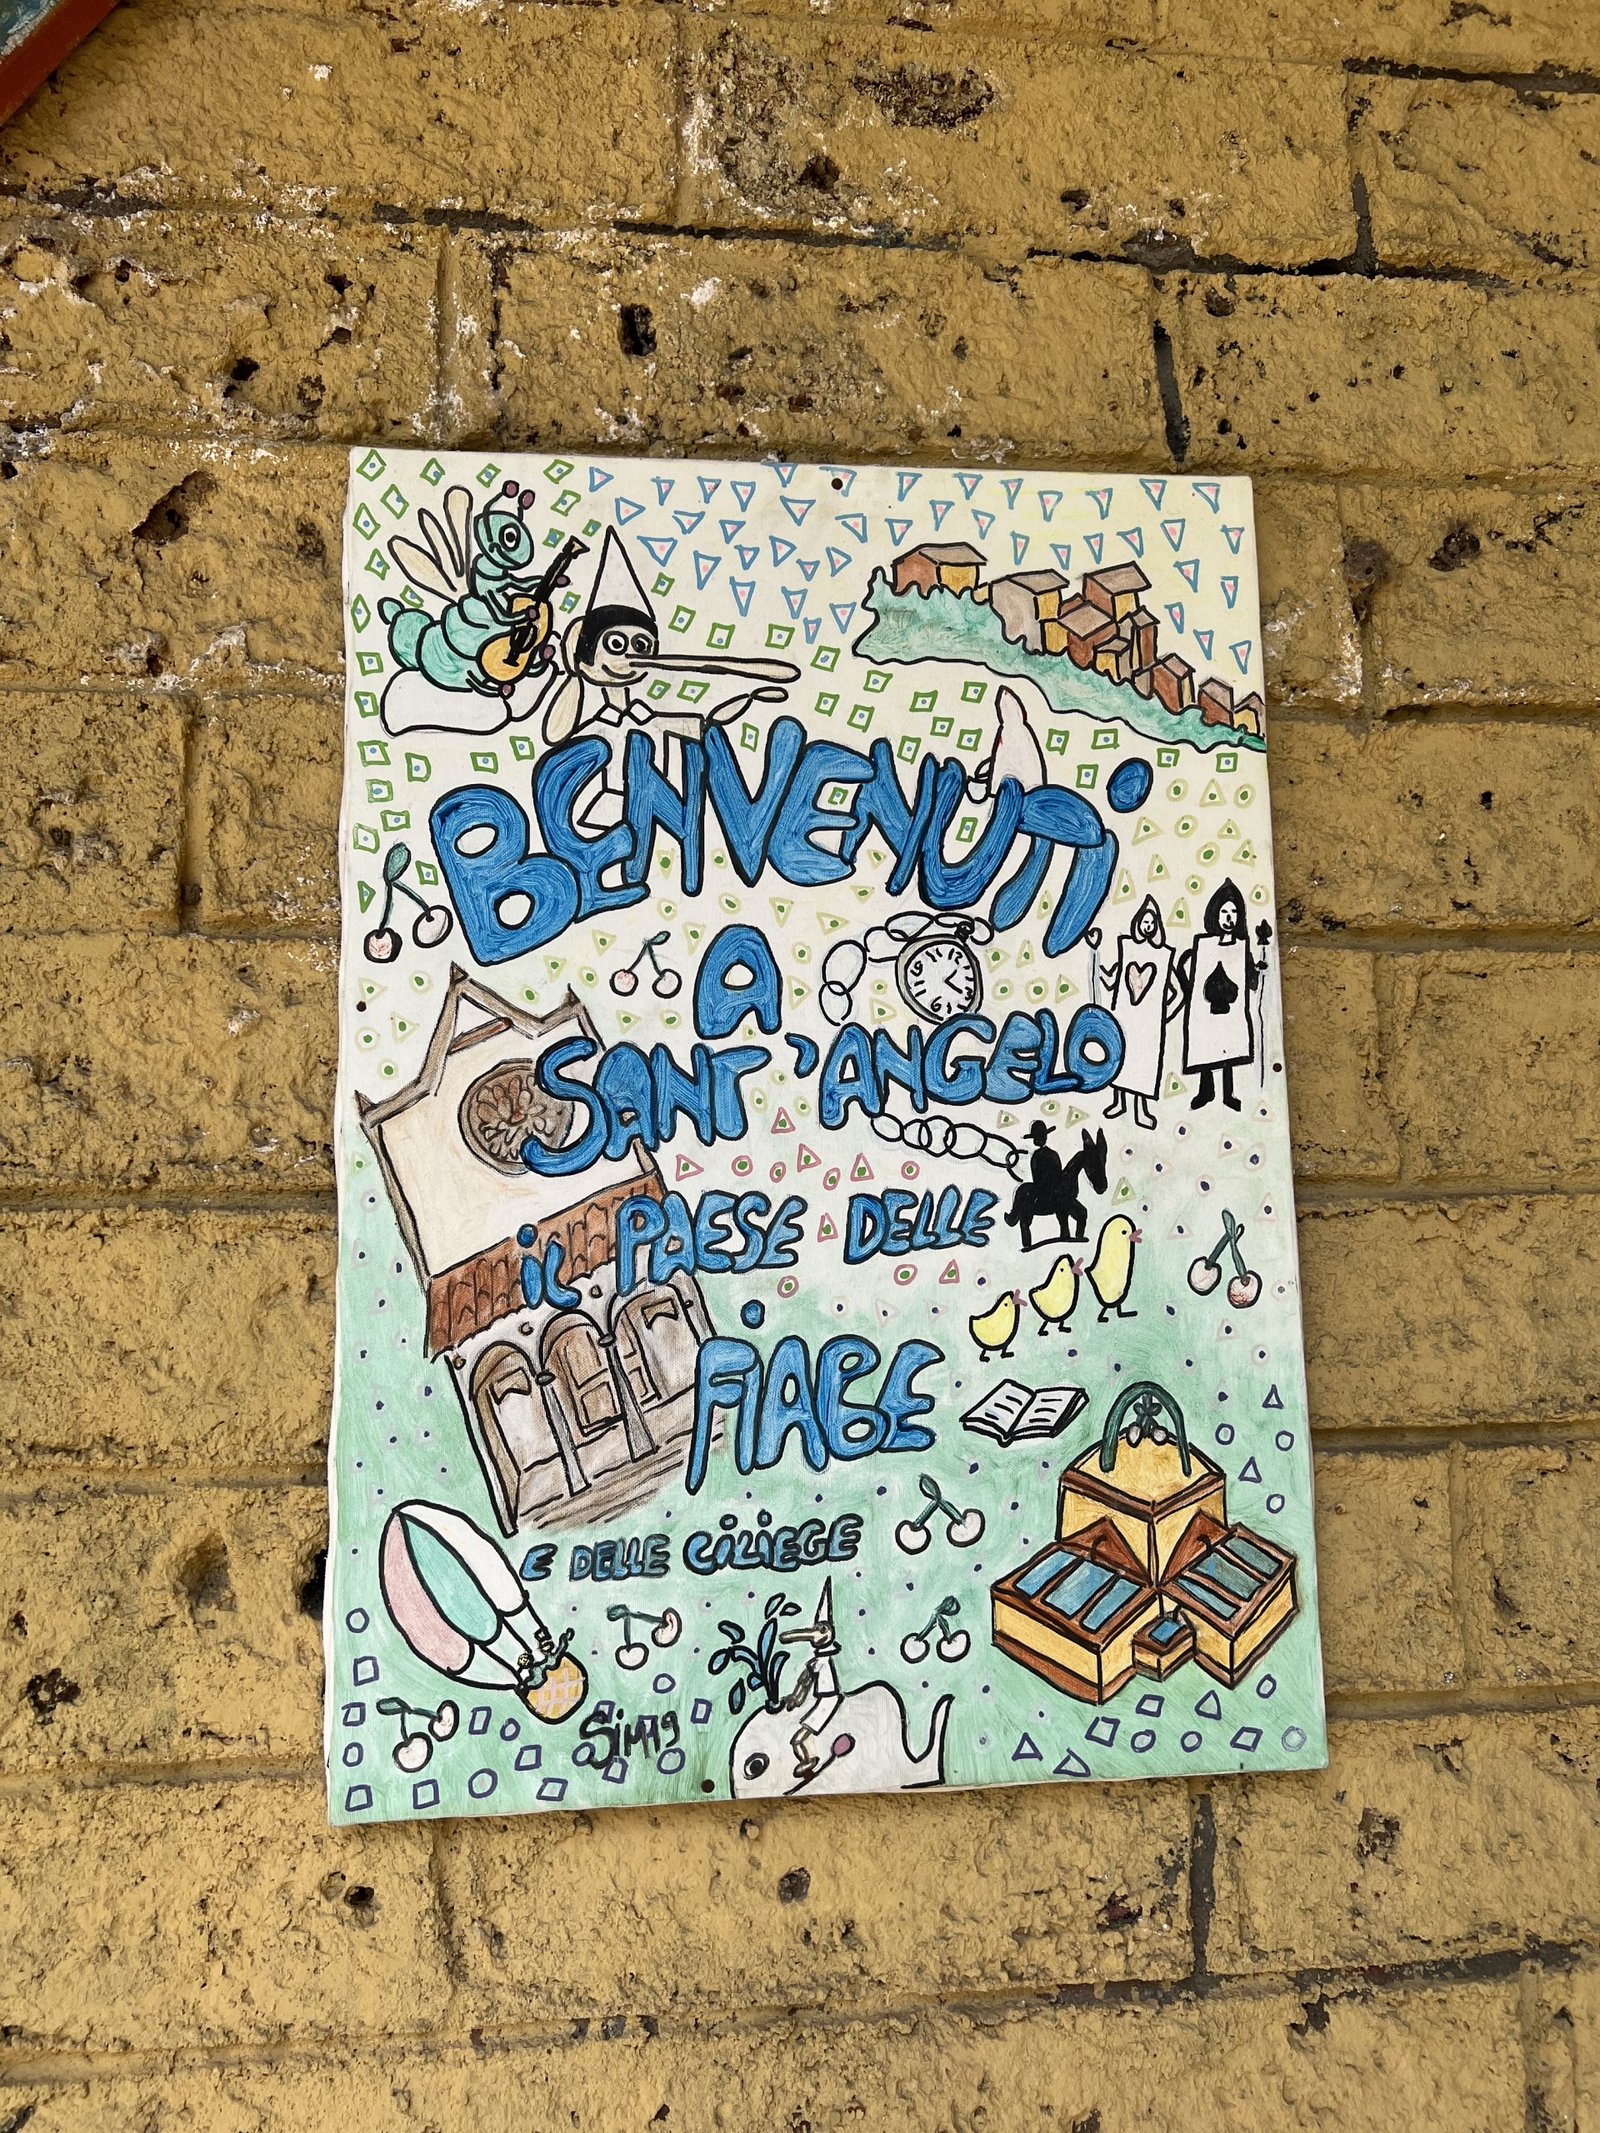 BENVENUTI
A
SANT'ANGELO
il PAESE DELLE
FIABE
E DELLE CILIEGE
Sim19